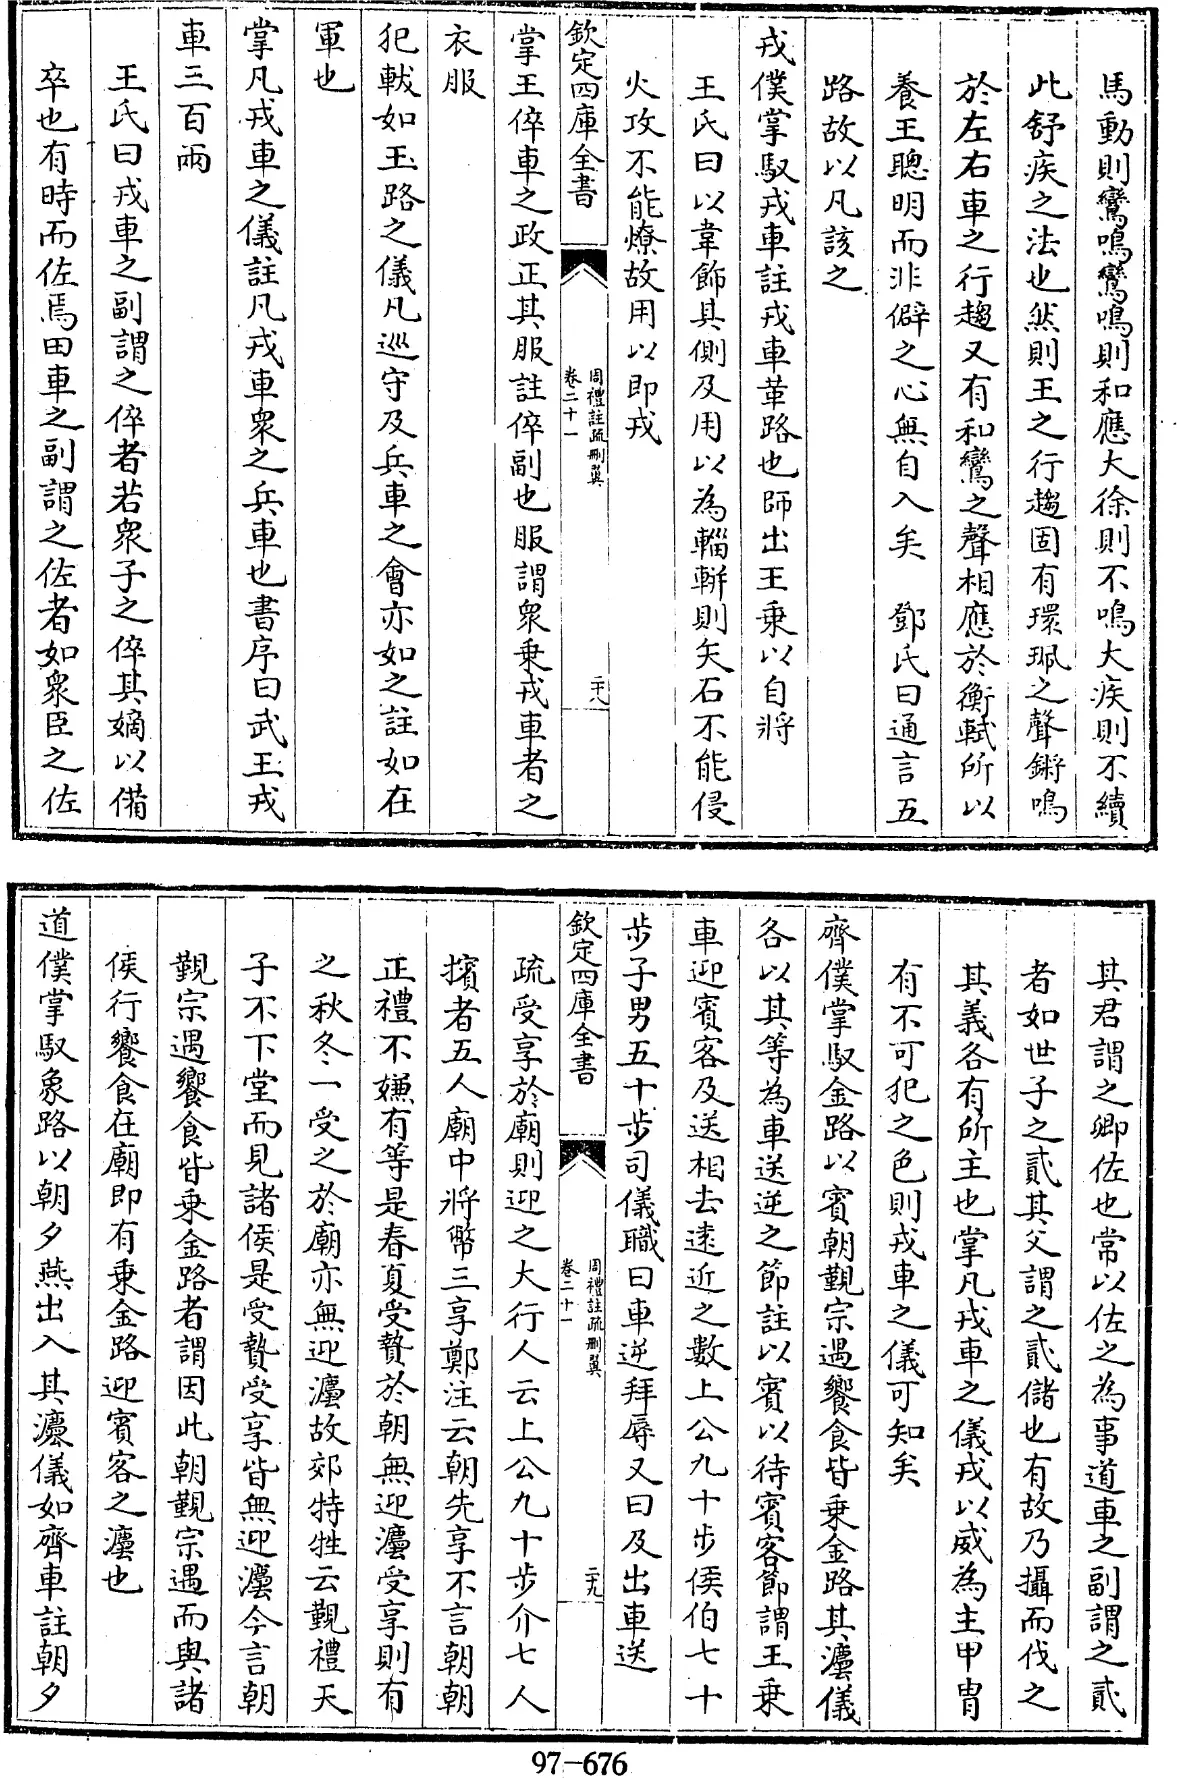 馬動則鸞鳴鸞鳴則和應大徐則不鳴大疾則不續
此舒疾之法也然則王之行趨固有環珮之聲鏘鳴
於左右車之行趨又有和鸞之聲相應於衡軾所以
養王聰明而非僻之心無自入矣　鄧氏曰通言五
路故以凡該之
戎僕掌馭戎車註戎車革路也師出王乗以自將
王氏曰以韋飾其側及用以為輜軿則矢石不能侵
火攻不能燎故用以即戎
欽定四庫全書
周禮註疏刪翼
卷二十一
二十八
掌王倅車之政正其服註倅副也服謂衆乗戎車者之
衣服
犯軷如玉路之儀凡巡守及兵車之會亦如之註如在
軍也
掌凡戎車之儀註凡戎車衆之兵車也書序曰武王戎
車三百兩
王氏曰戎車之副謂之倅者若衆子之倅其嫡以備
卒也有時而佐焉田車之副謂之佐者如衆臣之佐
其君謂之卿佐也常以佐之為事道車之副謂之貳
者如世子之貳其父謂之貳儲也有故乃攝而伐之
其義各有所主也掌凡戎車之儀戎以威為主甲胄
有不可犯之色則戎車之儀可知矣
齊僕掌馭金路以賓朝覲宗遇饗食皆乗金路其灋儀
各以其等為車送逆之節註以賓以待賓客節謂王乗
車迎賓客及送相去逺近之數上公九十步侯伯七十
步子男五十步司儀職曰車逆拜辱又曰及出車送
欽定四庫全書
周禮註疏刪翼
卷二十一
二十九
疏受享於廟則迎之大行人云上公九十步介七人
擯者五人廟中將幣三享鄭注云朝先享不言朝朝
正禮不嫌有等是春夏受贄於朝無迎灋受享則有
之秋冬一受之於廟亦無迎灋故郊特牲云覲禮天
子不下堂而見諸侯是受贄受享皆無迎灋今言朝
覲宗遇饗食皆乗金路者謂因此朝覲宗遇而與諸
侯行饗食在廟即有乗金路迎賓客之灋也
道僕掌馭象路以朝夕燕出入其灋儀如齊車註朝夕
97-676